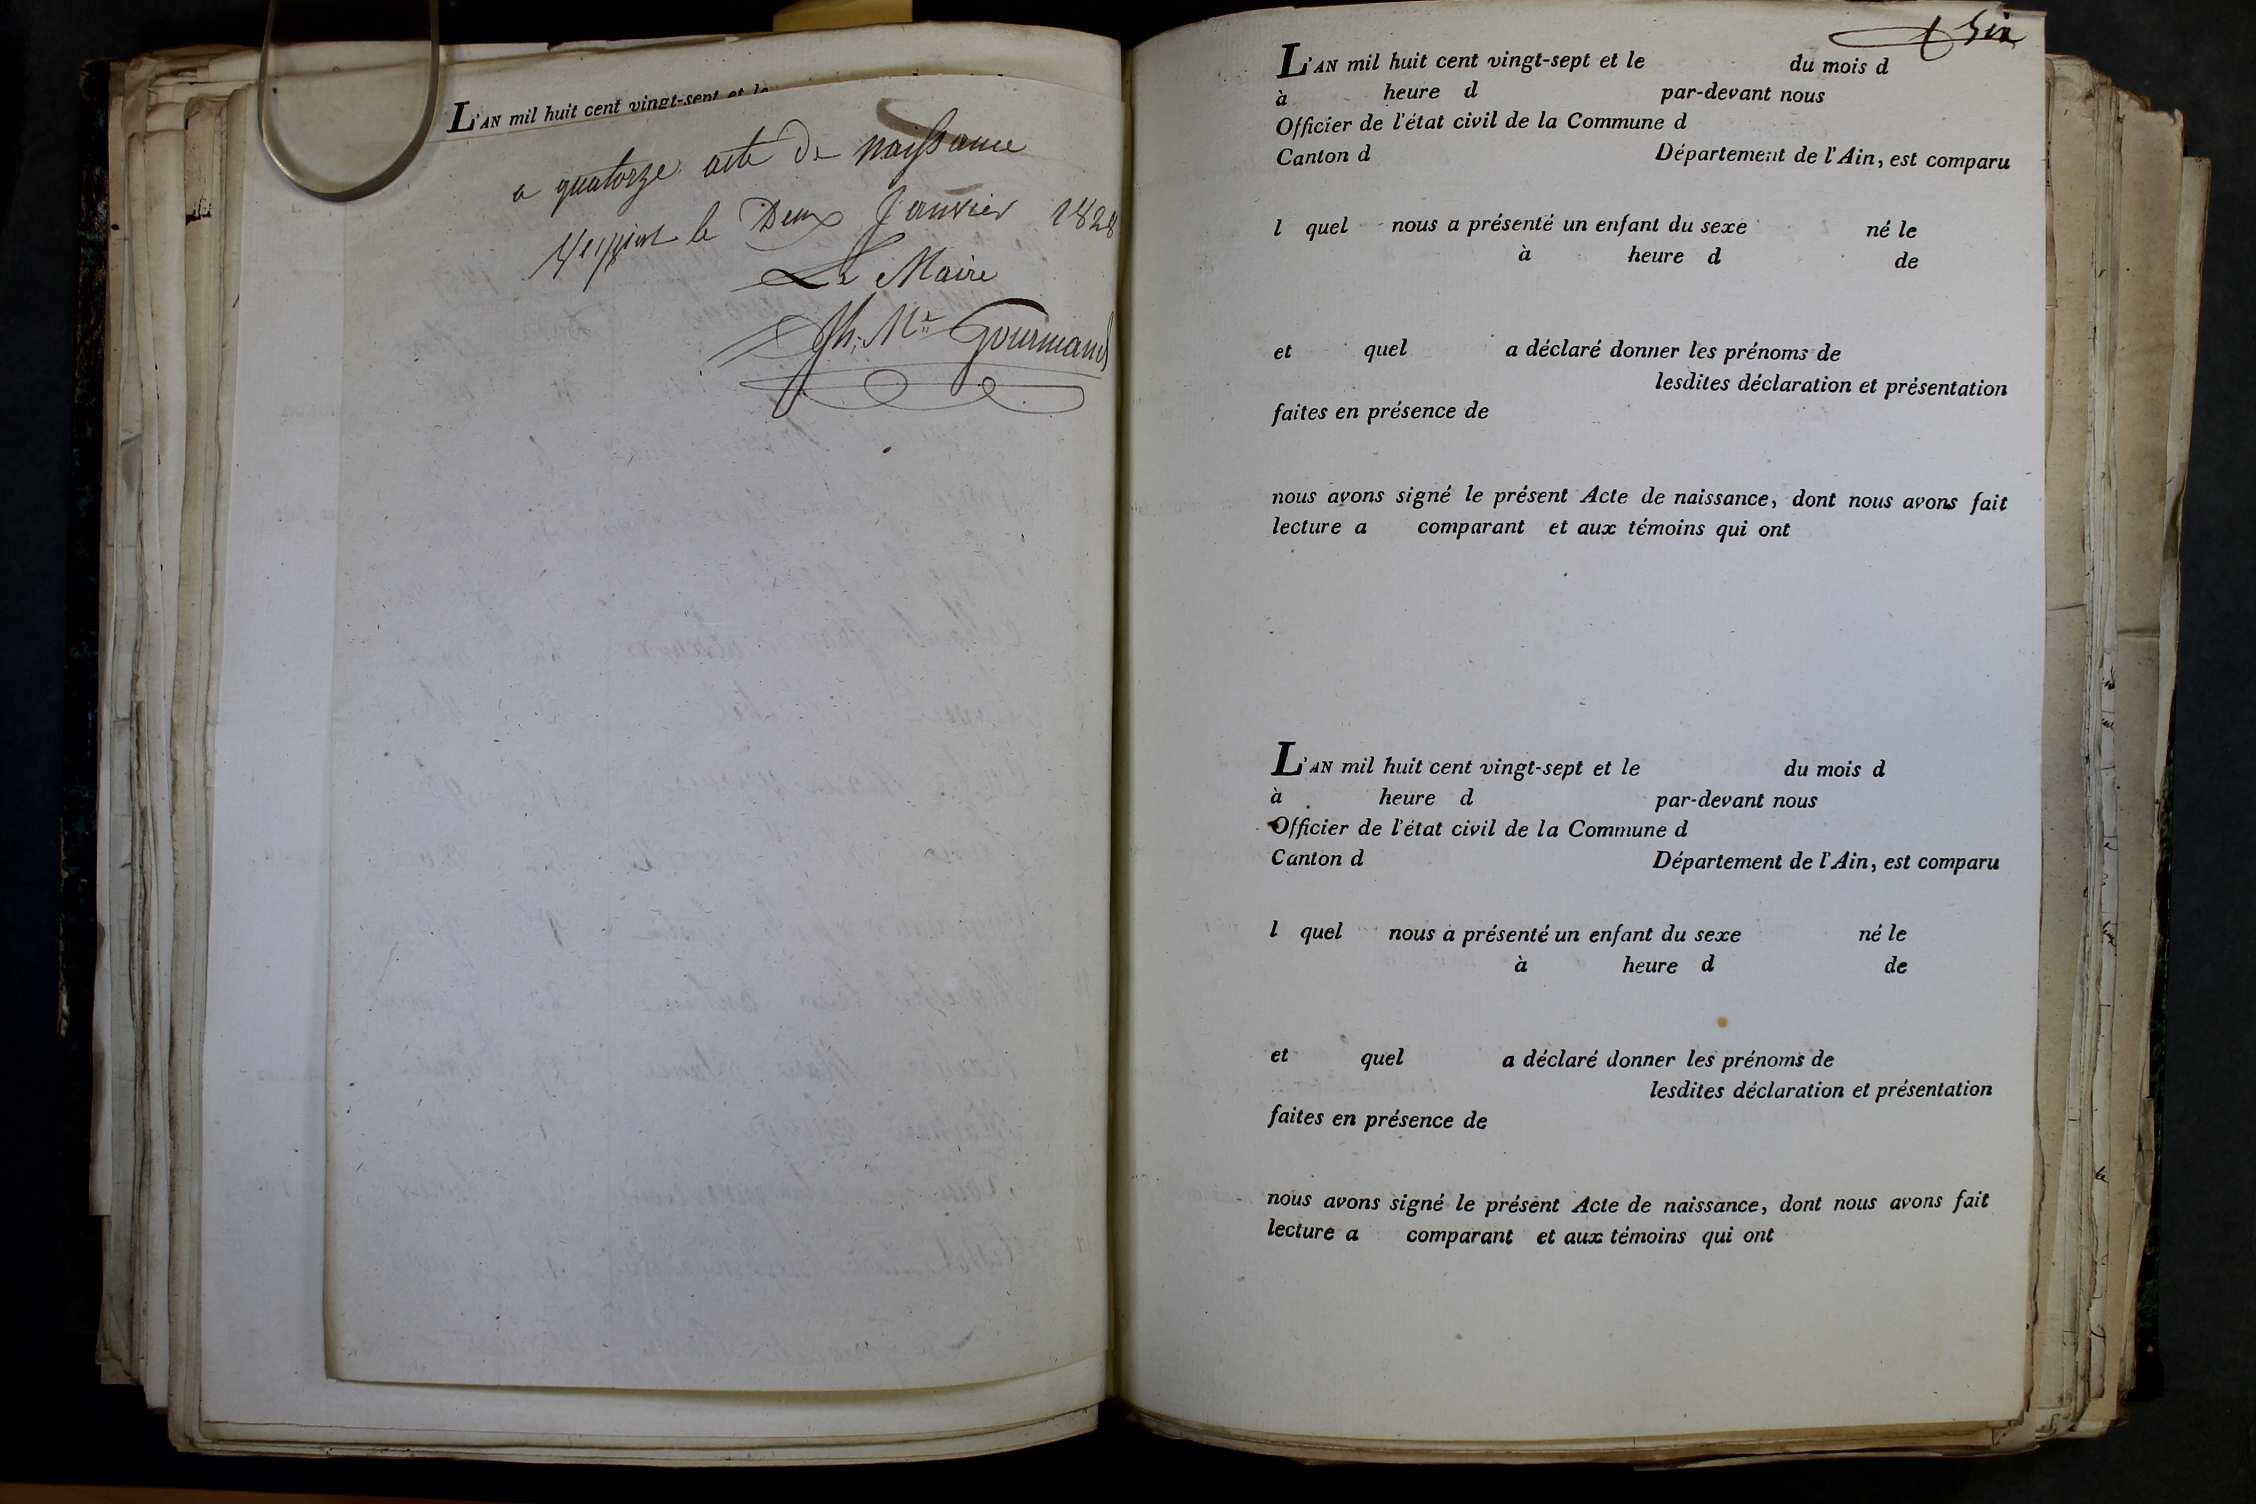 L'AN mil huit cent vingt-sept et le
a quatorze acte de naissance
le Deux Janvier 1828
Le Maire
Jh. Me Gourmand
six
L'AN mil huit cent vingt-sept et le du mois d
à heure d par-devant nous
Officier de l'état civil de la Commune d
Canton d Département de l'Ain, est comparu
l quel nous a présenté un enfant du sexe né le
à heure d de
et quel a déclaré donner les prénoms de
lesdites déclaration et présentation
faites en présence de
nous avons signé le présent Acte de naissance, dont nous avons fait
lecture a comparant et aux témoins qui ont
L'AN mil huit cent vingt-sept et le du mois d
à heure d par-devant nous
Officier de l'état civil de la Commune d
Canton d Département de l'Ain, est comparu
l quel nous a présenté un enfant du sexe né le
à heure d de
et quel a déclaré donner les prénoms de
lesdites déclaration et présentation
faites en présence de
nous avons signé le présent Acte de naissance, dont nous avons fait
lecture a comparant et aux témoins qui ont